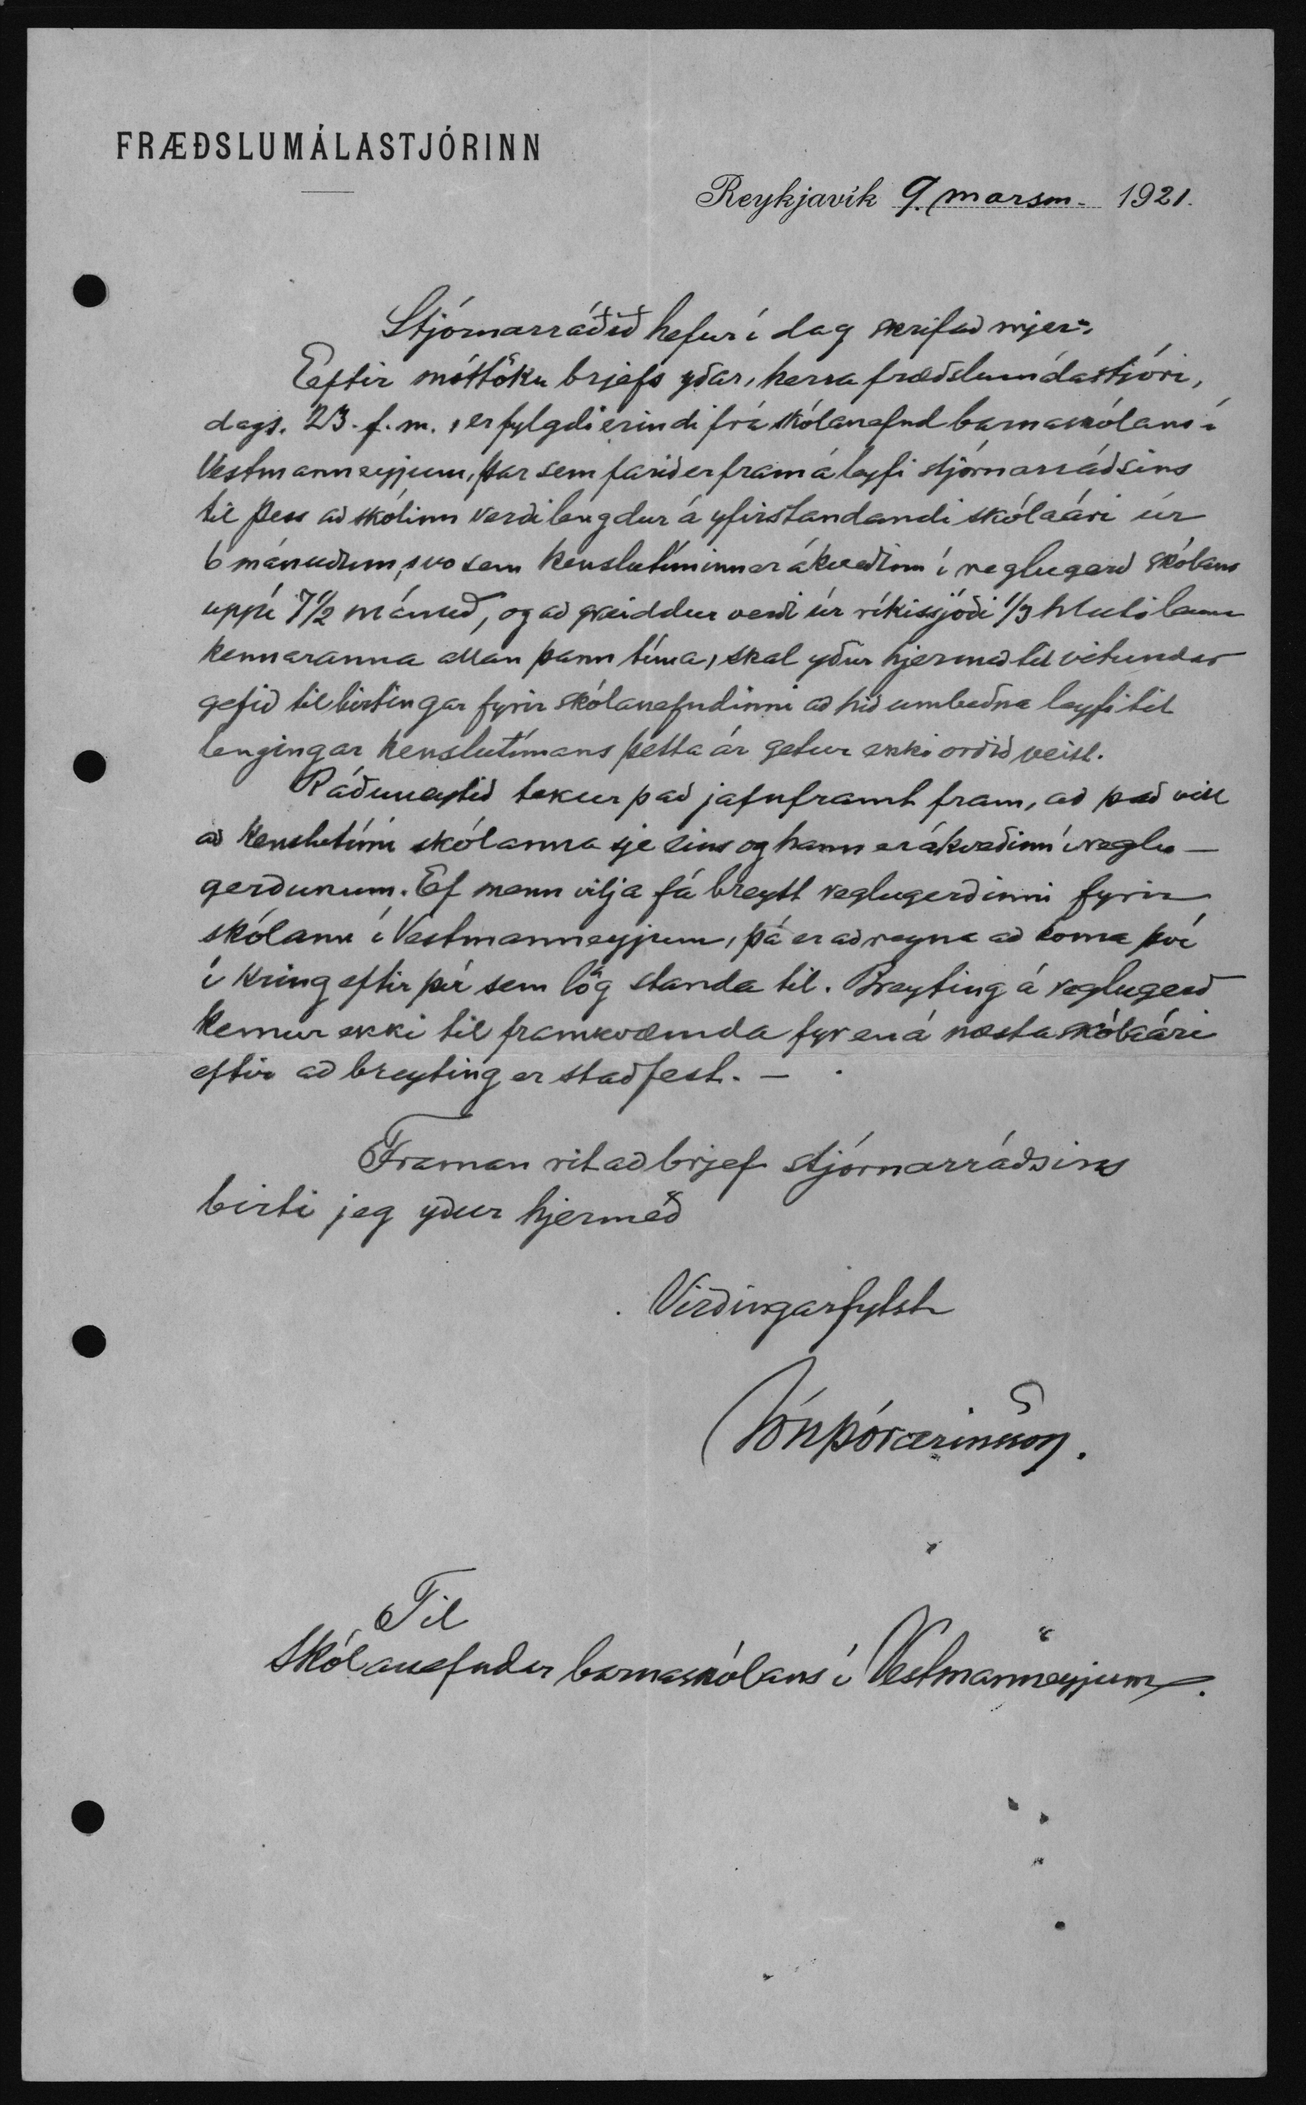 FRÆÐSLUMÁLASTJÓRINN
Reykjavík 9. marsm. 1921.
Stjórnarráðið hefur í dag skrifað mjer:
Eeftir móttöku brjefs yðar, herra fræðslumálastjóri,
dags. 23. f. m., er fylgdi erindi frá skólanefnd barnaskólans í
Vestmanneyjum, þar sem farið er fram á leyfi stjórnarráðsins
til þess að skólinn verði lengdur á yfirstandandi skólaári úr
6 mánuðum, svo sem kenslutíminn er ákveðinn í reglugerð skólans
uppí 7 1/2 mánuð, og að greiddur verði úr ríkissjóði 1/3 hluti launa
kennaranna allan þann tíma, skal yður hjermeð til vitundar
gefið til birtingar fyrir skólanefndinni að hið umbeðna leyfi til
lengingar kenslutímans þetta ár getur ekki orðið veitt.
Ráðuneytið tekur það jafnframt fram, að það vill
að kenslutími skólanna sje eins og hann er ákveðinn í reglu-
gerðunum. Ef menn vilja fá breytt reglugerðinni fyrir
skólann í Vestmanneyjum, þá er að reyna að koma því
í kring eftir því sem lög standa til. Breyting á reglugerð
kemur ekki til framkvæmda fyr en á næsta skólaári
eftir að breyting er staðfest. -
Framan ritað brjef stjórnarráðsins
birti jeg yður hjermeð
Virðingarfylst
Jón Þórarinsson.
Til
Skólanefndar barnaskólans í Vestmanneyjum.